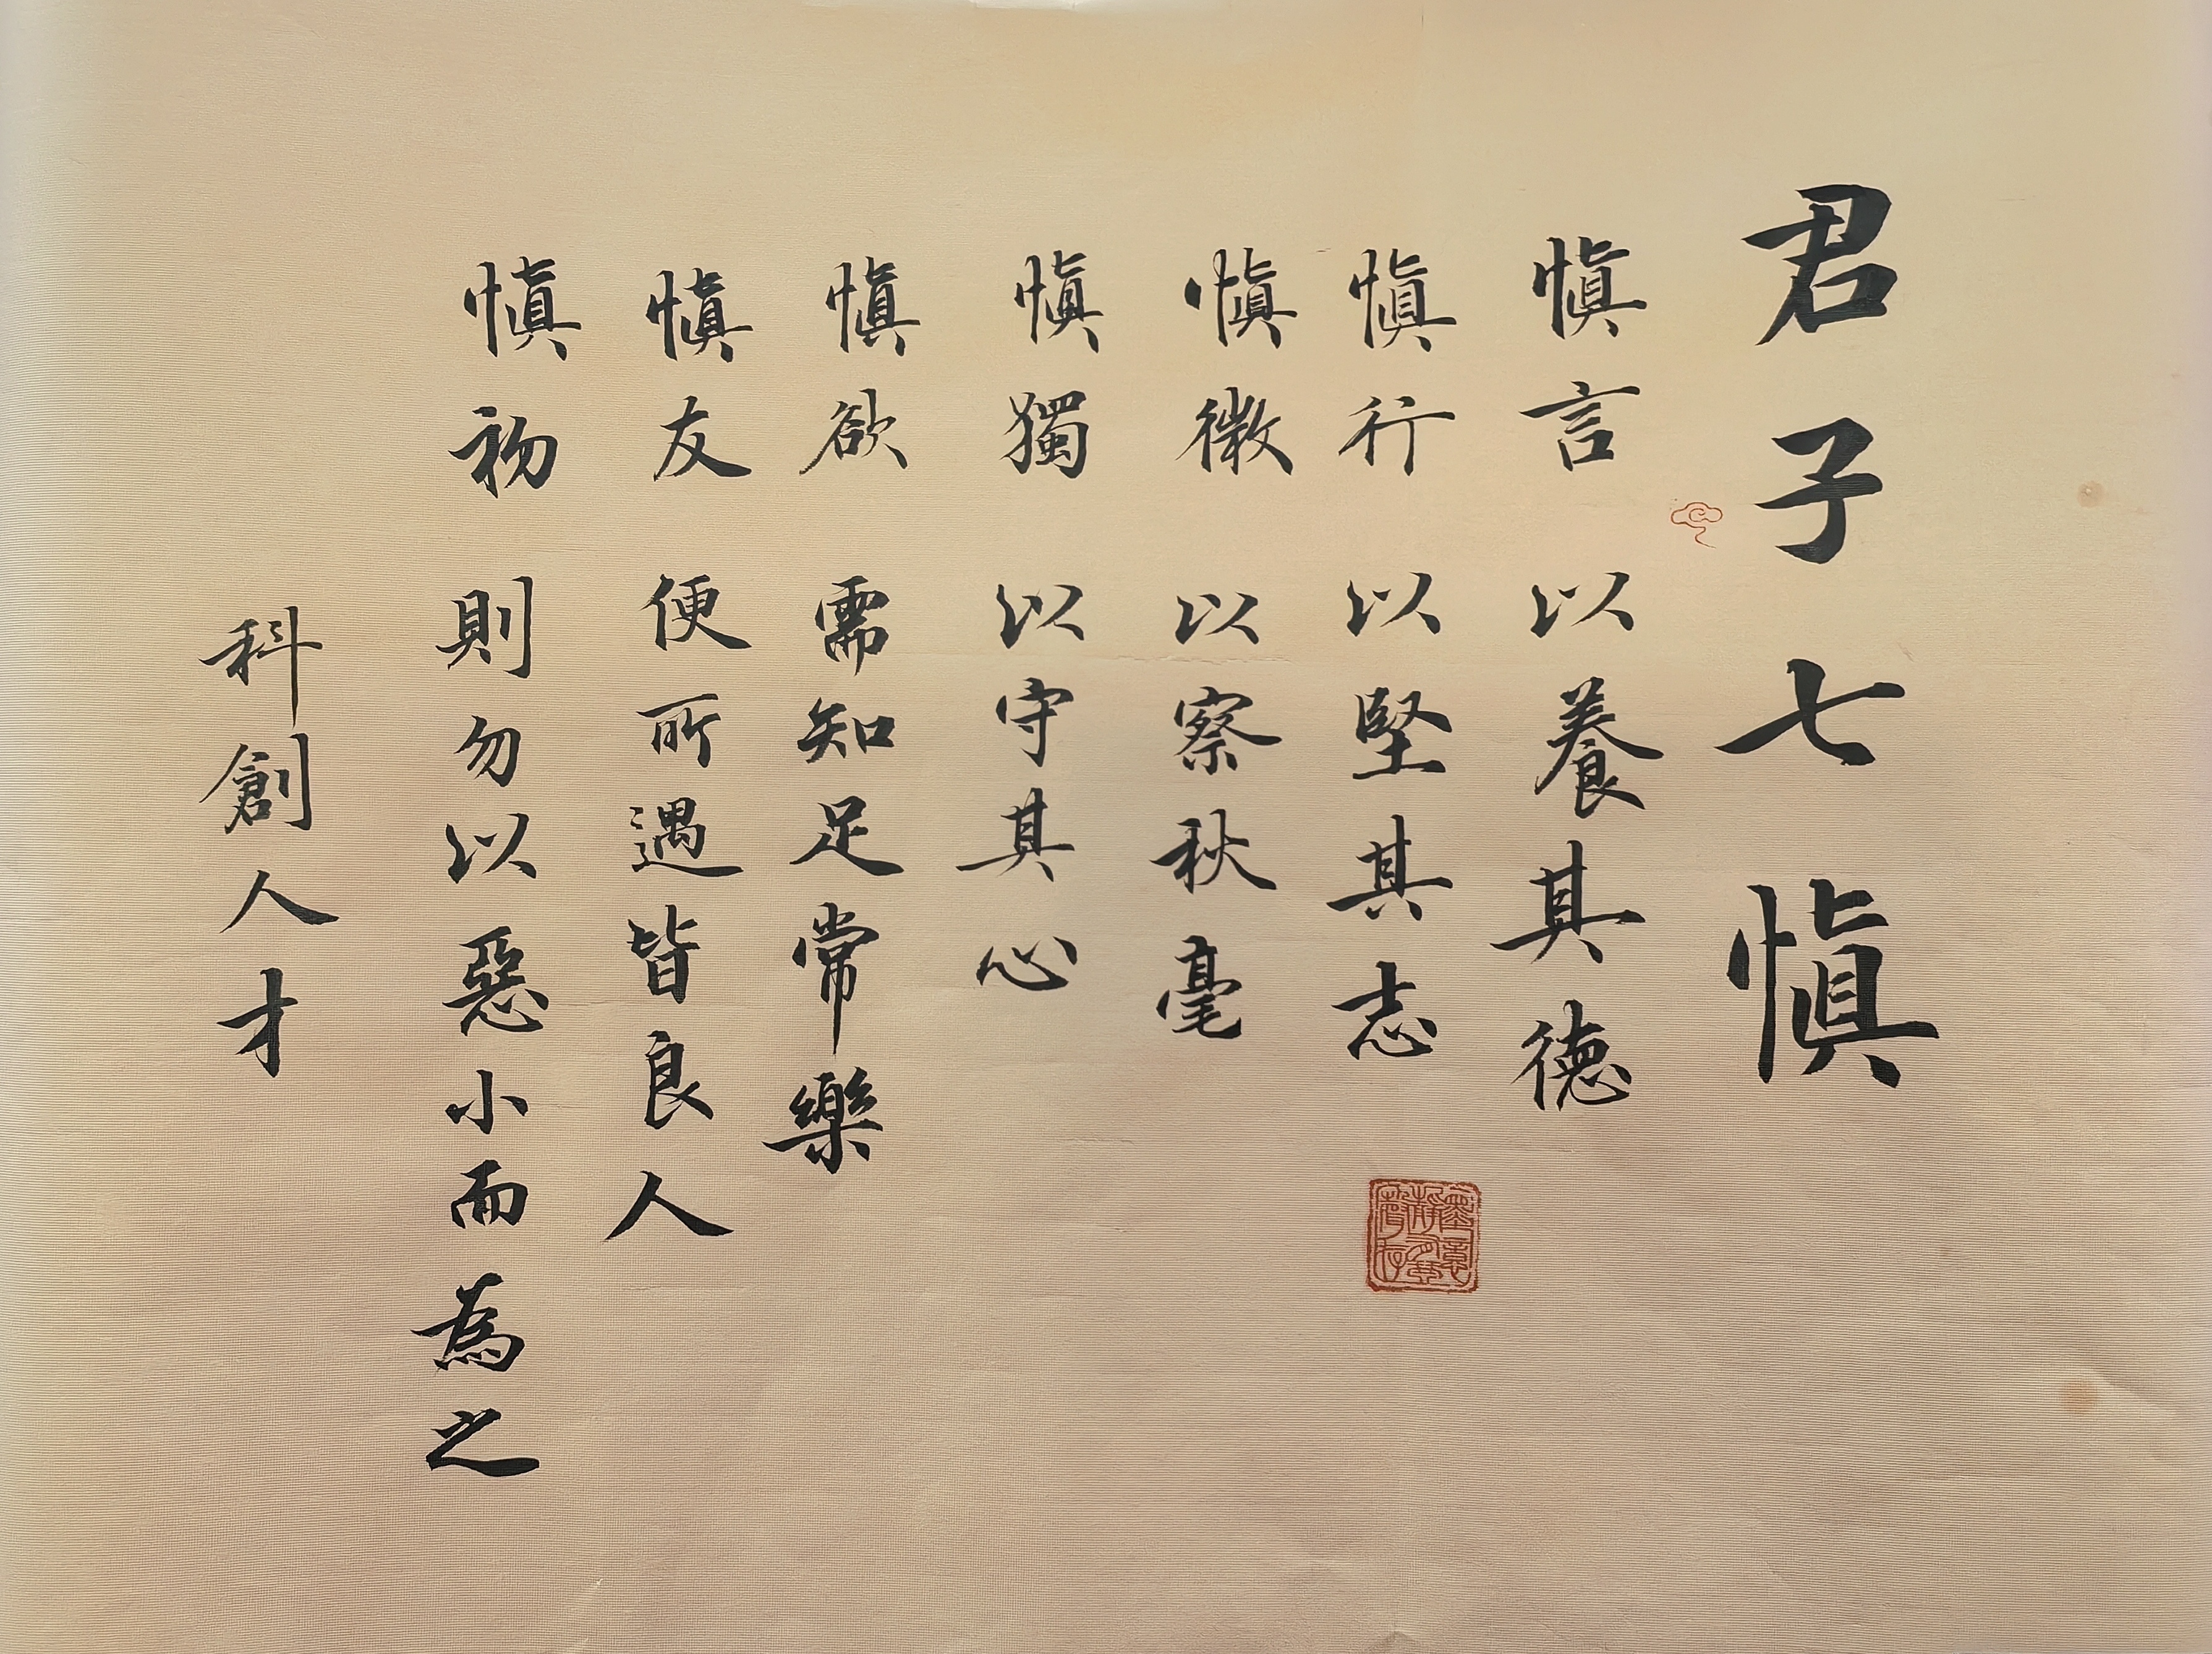 君子七慎
慎言 以養其德
慎行 以堅其志
慎微 以察秋毫
慎獨 以守其心
慎欲 需知足常樂
慎友 便所遇皆良人
慎初 則勿以惡小而為之
科創人才